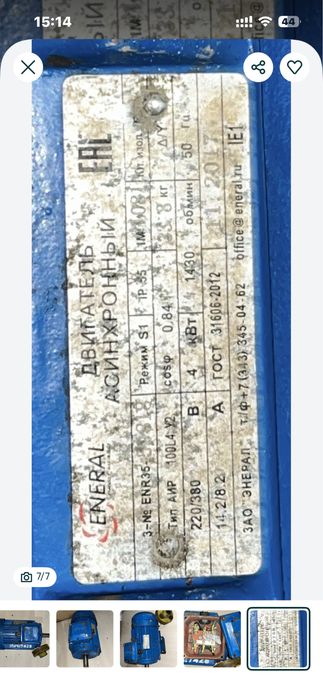 15:14
44
ENERAL
ДВИГАТЕЛЬ
АСИНХРОННЫЙ
EAC
3~№ ENR35
Режим S1
IP 55
Кл изол
Тип АИР 100L4 У2
cosφ 0,84
кг
Δ/Y
220/380 В
4 кВт
1430 об/мин
50 Гц
14.2/8.2 А
ГОСТ 31606-2012
ЗАО "ЭНЕРАЛ"
т/ф +7(3
345 04 62
office@eneral.ru
IE1
7/7